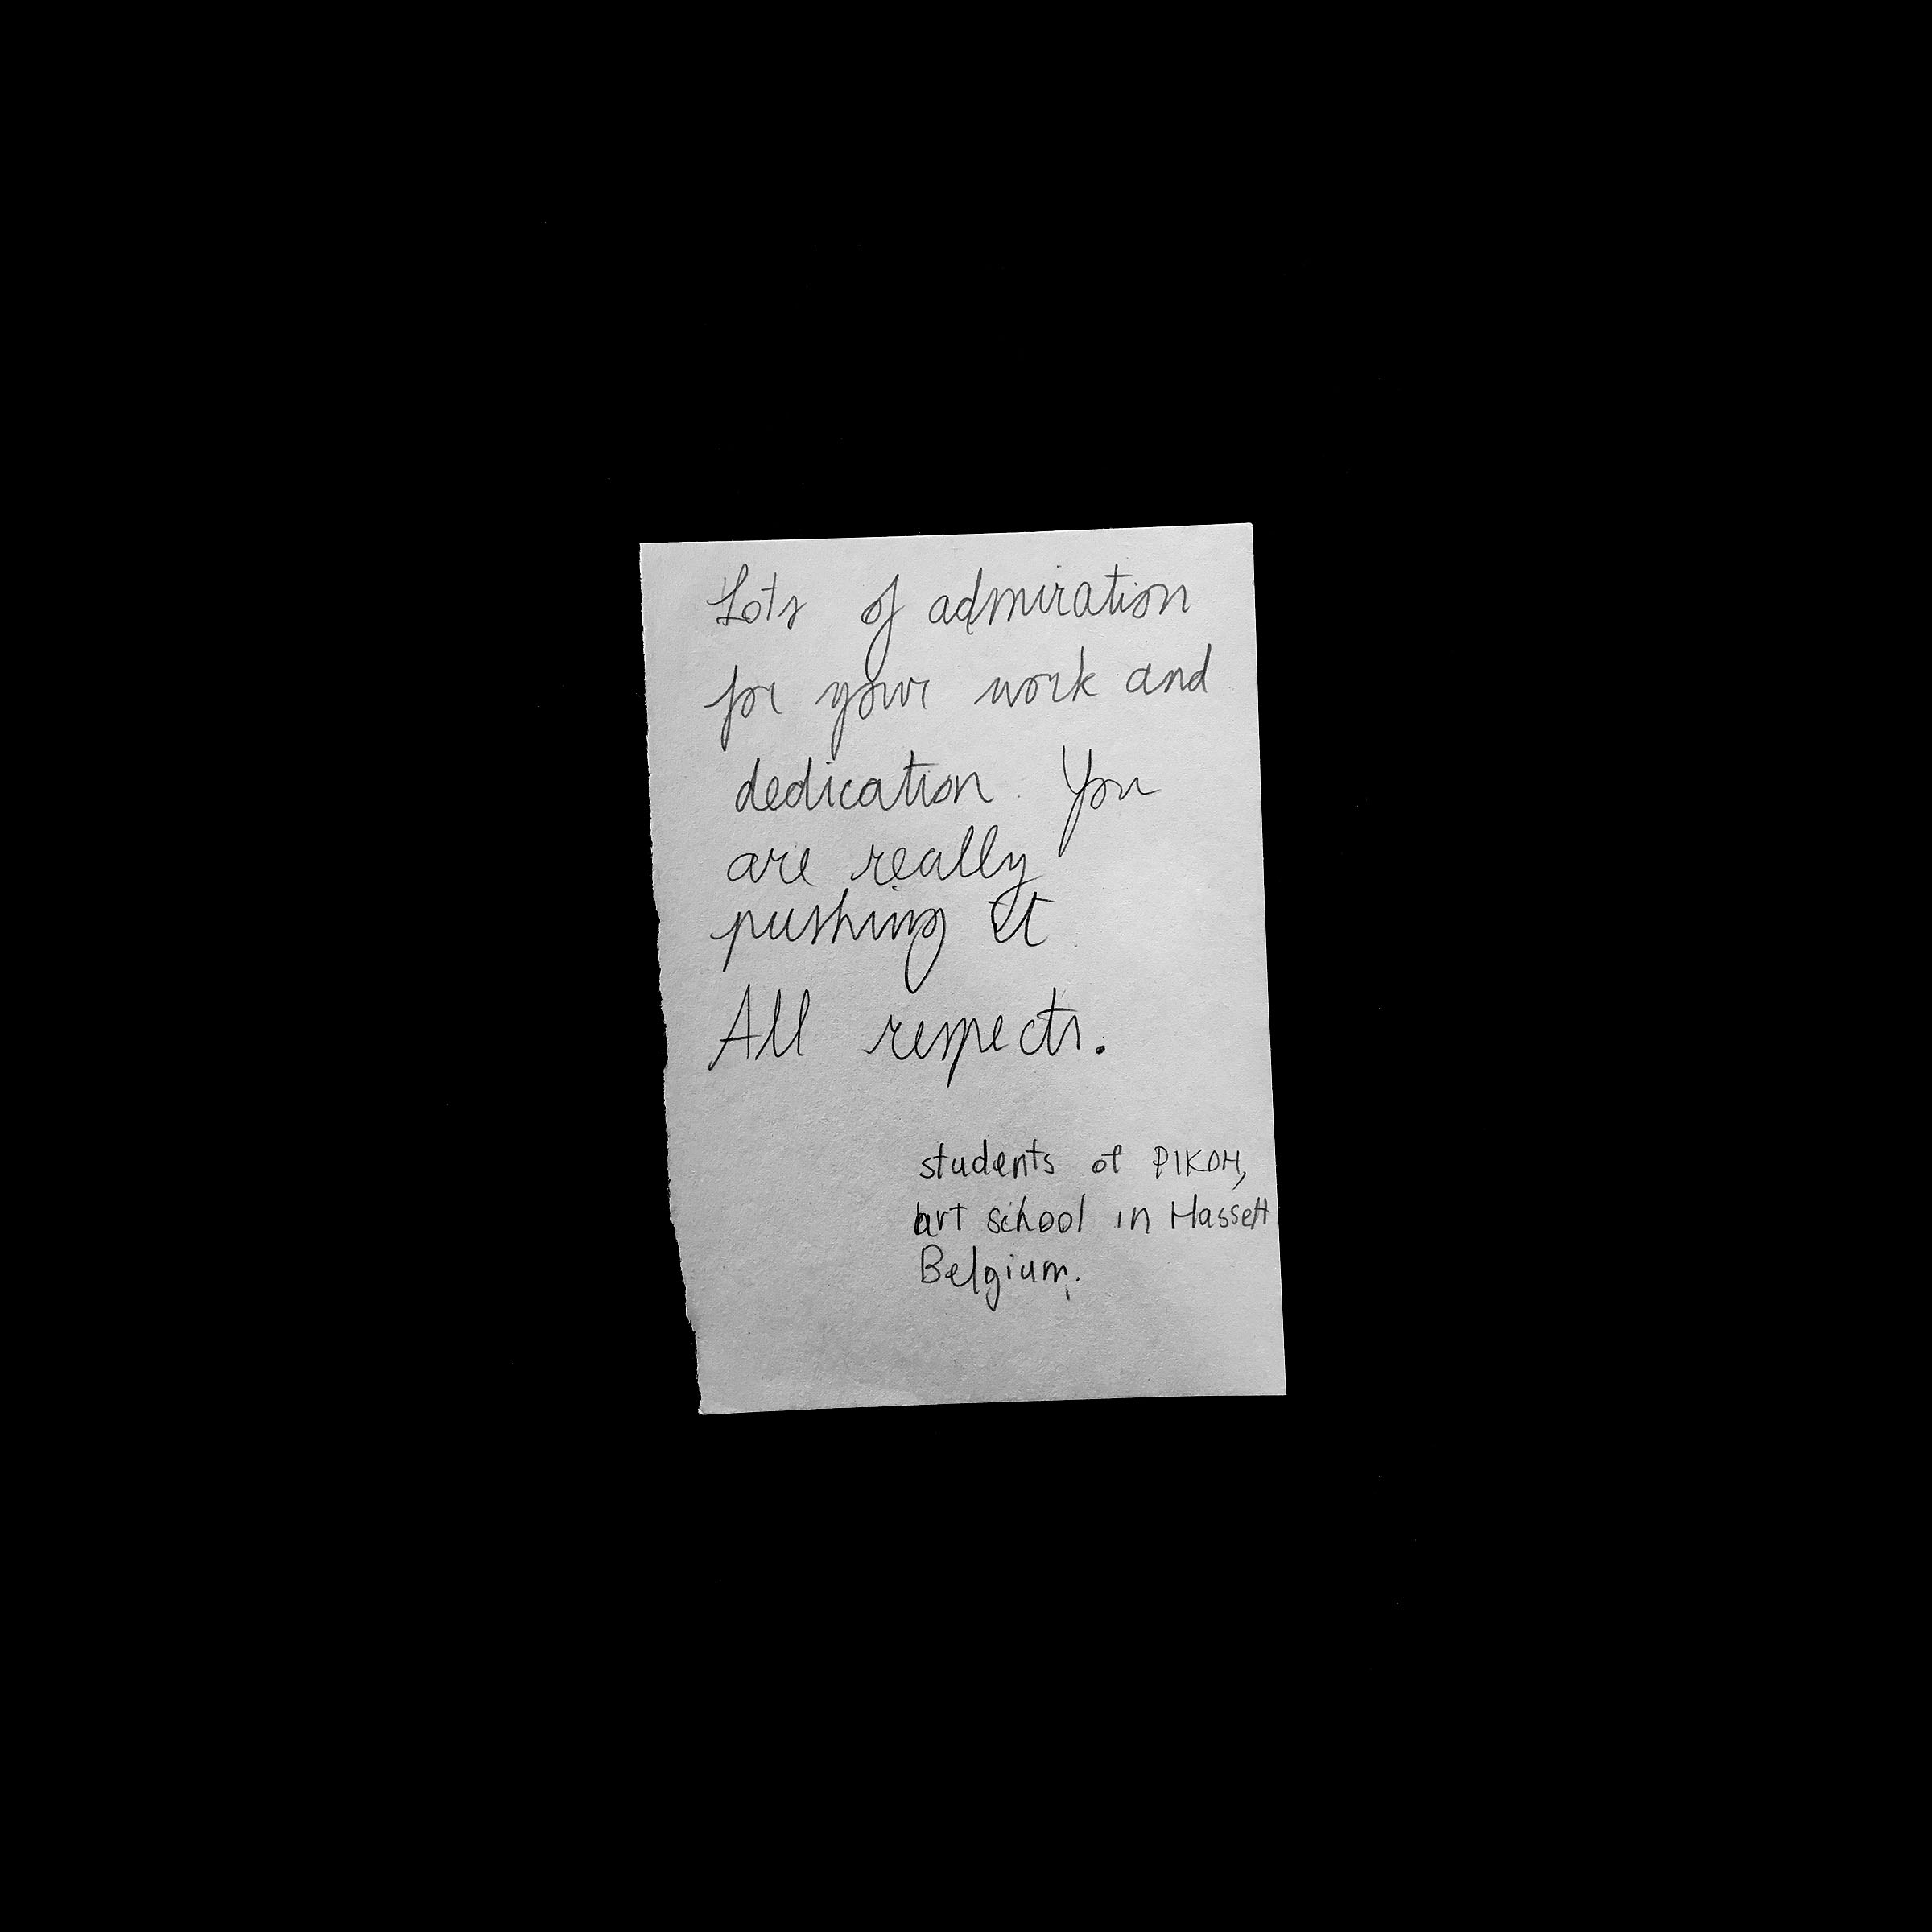 Lots of admiration
for your work and
dedication. You
are really
pushing it
All respects.
students of PIKOH,
art school in Hasselt
Belgium.